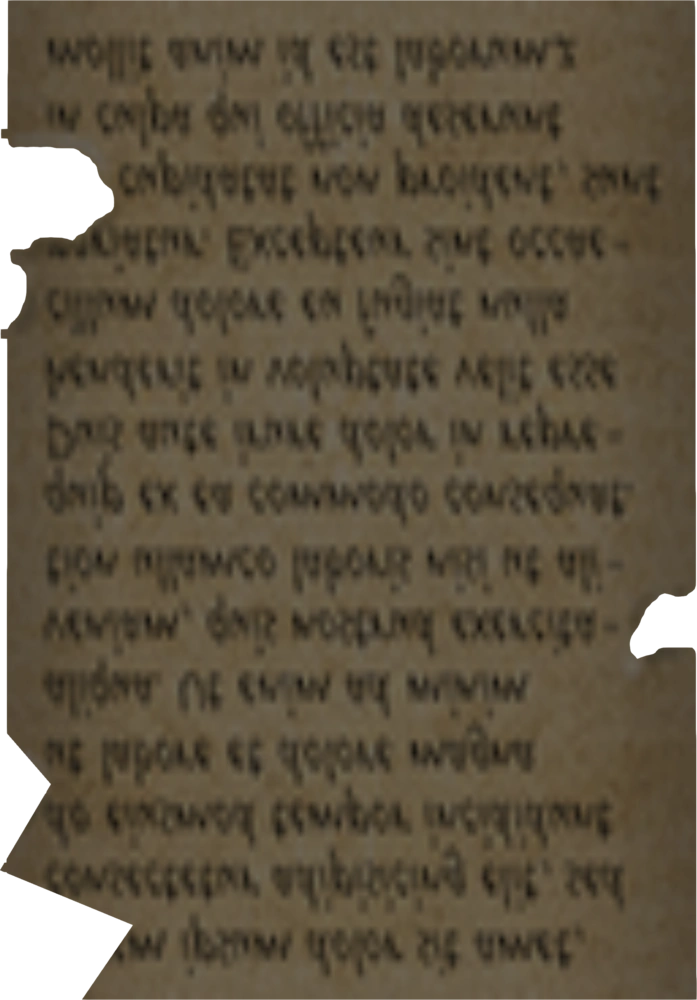 ipsum dolor sit amet,
consectetur adipisicing elit, sed
do eiusmod tempor incididunt
ut labore et dolore magna
aliqua. Ut enim ad minim
veniam, quis nostrud exercita-
tion ullamco laboris nisi ut ali-
quip ex ea commodo consequat.
Duis aute irure dolor in repre-
henderit in voluptate velit esse
cillum dolore eu fugiat nulla
Excepteur sint occae-
cupidatat non proident, sunt
in culpa qui officia deserunt
mollit anim id est